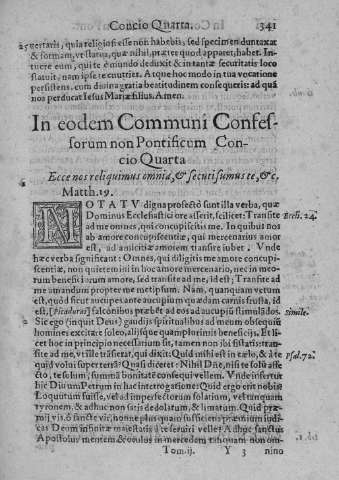 Concio Quarta. 341
uersaris, quia religiosi esse non habebis, sed specimen duntaxat
& formam, vestis tua, quæ nihil, præter quod apparet, habet. In-
tuere eum, qui te è mundo deduxit & in tantæ securitatis loco
statuit, nam ipse te enutriet. Atque hoc modo in tua vocatione
persistens, cum diuina gratia beatitudinem consequeris: ad quā
nos perducat Iesus Mariæ filius. Amen.
In eodem Communi Confes-
sorum non Pontificum Con-
cio Quarta
Ecce nos reliquimus omnia, & secuti sumus te, &c,
Matth. 19.
NOTATV digna profectò sunt illa verba, quæ
Dominus Ecclesiastici ore asserit, scilicet: Transite Eccli. 24.
ad me omnes, qui concupiscitis me. In quibus nos
ab amore concupiscentiæ, qui mercenarius amor
est, ad amicitiæ amorem transire iubet. Vnde
hæc verba significant: Omnes, qui diligitis me amore concupi-
scentiæ, non quietem ini in hoc amore mercenario, nec in meo-
rum beneficiorum amore, sed transite ad me, id est, Transite ad
me amandum propter me metipsum. Nam, quanquam verum
est, quòd sicut aucupes ante aucupium quædam carnis frusta, id
est, [Picaduras] falconibus præbēt ad eos ad aucupiū stimulādos. Simile.
Sic ego (inquit Deus) gaudijs spiritualibus ad meum obsequiū
homines excitare soleo, alijsque quamplurimis beneficijs. Et li-
cet hoc in principio necessarium sit, tamen non ibi sistatis: tran-
site ad me, vt ille transierat, qui dixit: Quid mihi est in cælo, & à te Psal. 72.
quid volui super terrā? Quasi diceret: Nihil Dñe, nisi te solū asse-
cto, te solum, summā bonitatē consequi vellem. Vnde infertur
hîc Diuum Petrum in hac interrogatione: Quid ergo erit nobis?
Loquutum fuisse, vel ad imperfectorum solatium, vel tanquam
tyronem, & adhuc non satis dedolatum, & limatum. Quid præ-
mij vis ò sancte vir, nonne plus quàm sufficiens præmium iudi-
cas Deum infinitæ maiestatis à te seruiri velle? Adhuc sanctus
Apostolus mentem & oculos in mercedem tanquam non om-
Tom. ij. Y 3 nino